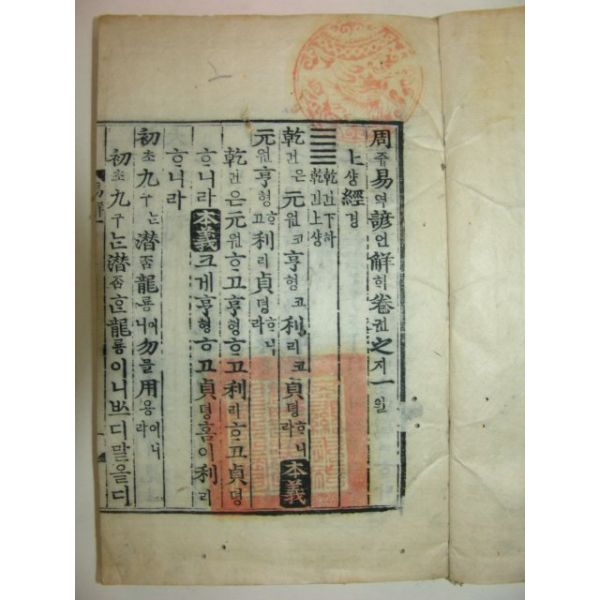 周쥬易역諺언解ᄒᆡ卷권之지一일
上샹經경
乾건下하 乾건上샹
乾건은元원코亨형코利리코貞뎡ᄒᆞ니라 本義
元원亨형ᄒᆞ고利리貞뎡ᄒᆞ니라
乾건은元원ᄒᆞ고亨형ᄒᆞ고利리ᄒᆞ고貞뎡
ᄒᆞ니라 本義 크게亨형ᄒᆞ고貞뎡홈이利리
ᄒᆞ니라
初초九구ᄂᆞᆫ潛ᄌᆞᆷ龍룡이니勿믈用용이니라
初초九구ᄂᆞᆫ潛ᄌᆞᆷᄒᆞᆫ龍룡이니ᄡᅳ디말을디